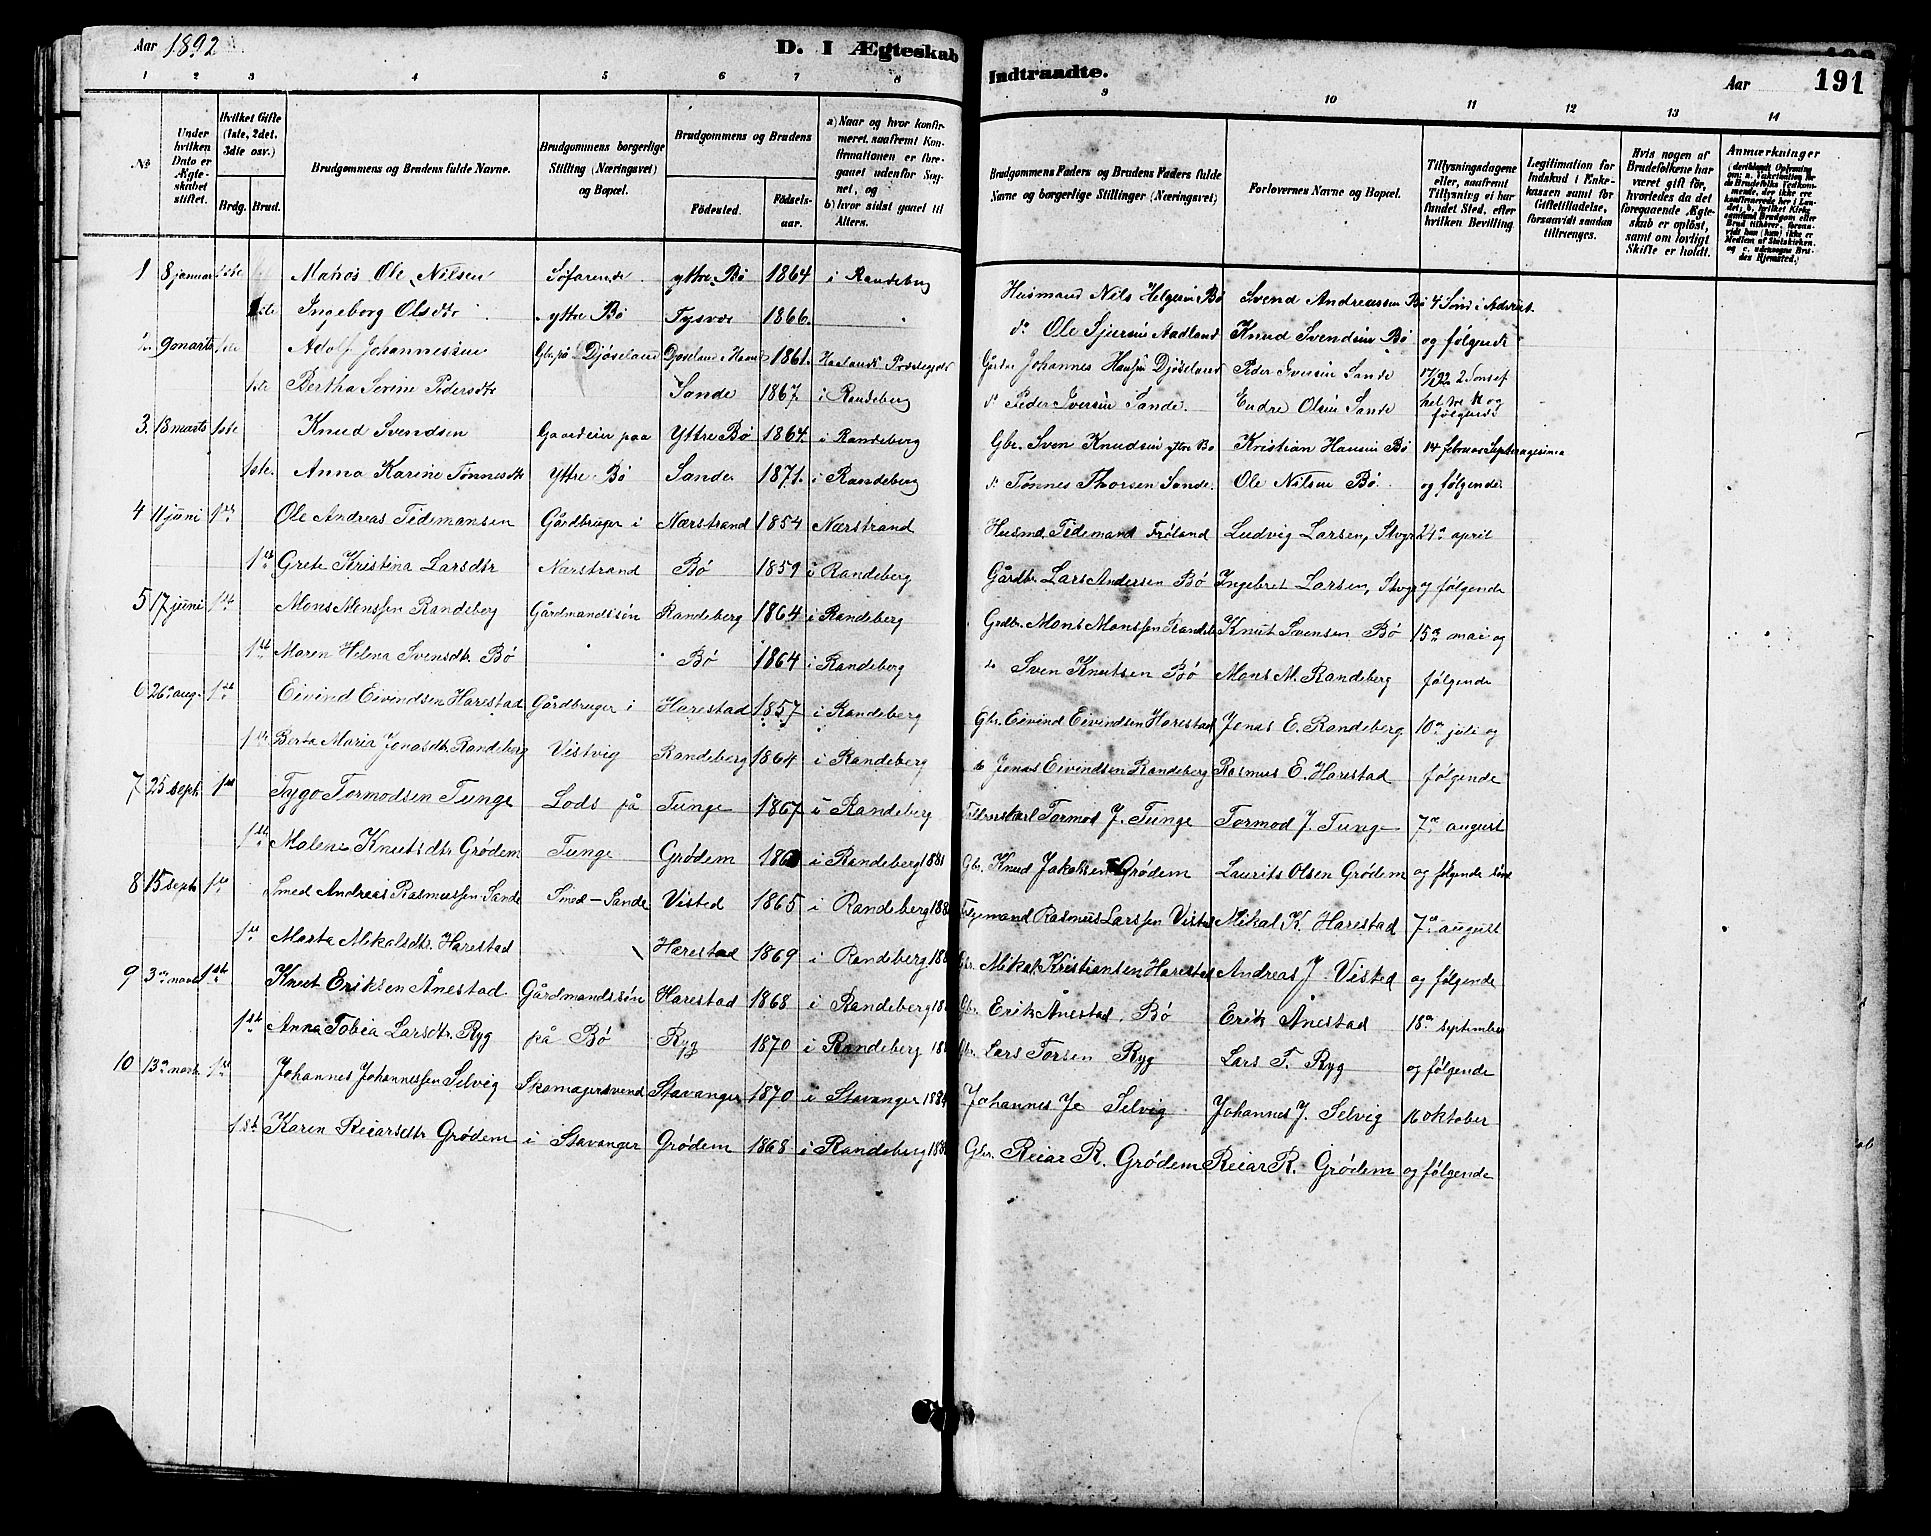 Aar 1892
D. I Ægteskab Indtraadte.
Aar
191
1 2 3 4 5 6 7 8 9 10 11 12 13 14
No
Under hvilken Dato er Ægteskabet stiftet.
Hvilket Gifte (1ste, 2det, 3die osv.)
Brdg. Brud.
Brudgommens og Brudens fulde Navne.
Brudgommens borgerlige Stilling (Næringsvei) og Bopæl.
Brudgommens og Brudens
Fødested. Fødselsaar.
a) Naar og hvor konfirmeret, saafremt Konfirmationen er foregaaet udenfor Sognet, og
b) hvor sidst gaaet til Alters.
Brudgommens Faders og Brudens Faders fulde Navne og borgerlige Stillinger (Næringsvei)
Forlovernes Navne og Bopæl.
Tillysningsdagene eller, saafremt Tillysning ei har fundet Sted, efter hvilken Bevilling.
Legitimation for Indskud i Enkekassen samt for Giftetilladelse, forsaavidt saadan tiltrænges.
Hvis nogen af Brudefolkene har været gift før, hvorledes da det foregaaende Ægteskab er opløst, samt om lovligt Skifte er holdt.
Anmærkninger
1 8 januar 1ste Ole Nilsen Søfarende yttre Bø 1864 i Randeberg Husmand Nils Helgesen Bø Svend Andreassen Bø 4 Sønd i Advent
1ste Ingeborg Olsdtr yttre Bø Tysvær 1866. do Ole Sjursen Aadland Knud Svendsen Bø og følgende
2. 9 marts 1ste Adolf Johannessen Gbr. på Djøseland Djøseland 1861. Haalands Præstegjeld Gårdm Johannes Hansen Djøseland Peder Iversen Sande
1ste Bertha Serine Pedersdtr Sande 1867. i Randeberg do Peder Iversen Sande. Endre Olsen Sande og følgende
3. 18 marts 1ste Knud Svendsen Gaardeier paa Yttre Bø 1864. i Randeberg Gbr. Sven Knudsen yttre Bø Kristian Hansen Bø 14 februar Septuagesima
1ste. Anna Karine Tønnesdtr Yttre Bø Sande 1871. i Randeberg do Tønnes Thorsen Sande. Ole Nilsen Bø. og følgende
4 11 juni 1ste Ole Andreas Tidemansen Gårdbruger i Nærstrand 1854 Nærstrand Husmd Tidemand Frøland Ludvig Larsen, Stvgr 24de april
1ste Grete Kristina Larsdtr Nærstrand Bø 1859 i Randeberg Gårdbr Lars Andersen Bø Ingebret Larsen, Stvgr og følgende
5 17 juni 1ste Mons Monssen Randeberg Gårdmandssøn Randeberg 1864 i Randeberg Grdbr. Mons Monssen Randeb Knut Svensen Bø 15de mai og
1ste Maren Helena Svensdtr. Bø Bø 1864 i Randeberg do Sven Knutsen Bø Mons M. Randeberg følgende
6 26de aug. 1ste Eivind Eivindsen Harestad Gårdbruger i Harestad 1857 i Randeberg Gbr. Eivind Eivindsen Harestad Jonas E. Randeberg 10de juli og
1ste Berta Maria Jonasdtr. Randeberg Vistvig Randeberg 1864 i Randeberg do Jonas Eivindsen Randeberg Rasmus E. Harestad følgende
7 25 septb. 1ste Tygo Tormodsen Tunge Lods på Tunge 1867 i Randeberg Tormod J. Tunge Tormod J. Tunge 7de august
1ste Malene Knutsdtr Grødem Tunge Grødem i Randeberg 1881 Gbr. Knud Jakobsen Grødem Laurits Olsen Grødem og følgende
8 15 septb 1ste Smed Andreas Rasmussen Sande Smed - Sande Visted 1865 i Randeberg Følgemand Rasmus Larssen Visted Mikal K. Harestad 7de august
1ste Marta Mikalsdtr. Harestad Harestad 1869 i Randeberg Gbr. Mikal Kristiansen Harestad Andreas J Visted og følgende
9 3de novb 1ste Knut Eriksen Ånestad Gårdmandssøn Harestad 1868 i Randeberg Gbr. Erik Ånestad, Bø Erik Ånestad 18de september
1ste Anna Tobia Larsdtr. Ryg på Bø Ryg 1870 i Randeberg Gbr. Lars Torsen Ryg Lars T. Ryg og følgende
10 13de novb. 1ste Johannes Johannessen Selvig Skomagersvend Stavanger 1870 i Stavanger Johannes Jo Selvig Johannes J. Selvig 16 oktober
1ste Karen Reiarsdtr Grødem i Stavanger Grødem 1868 i Randeberg Gbr. Reiar R. Grødem Reiar R. Grødem og følgende